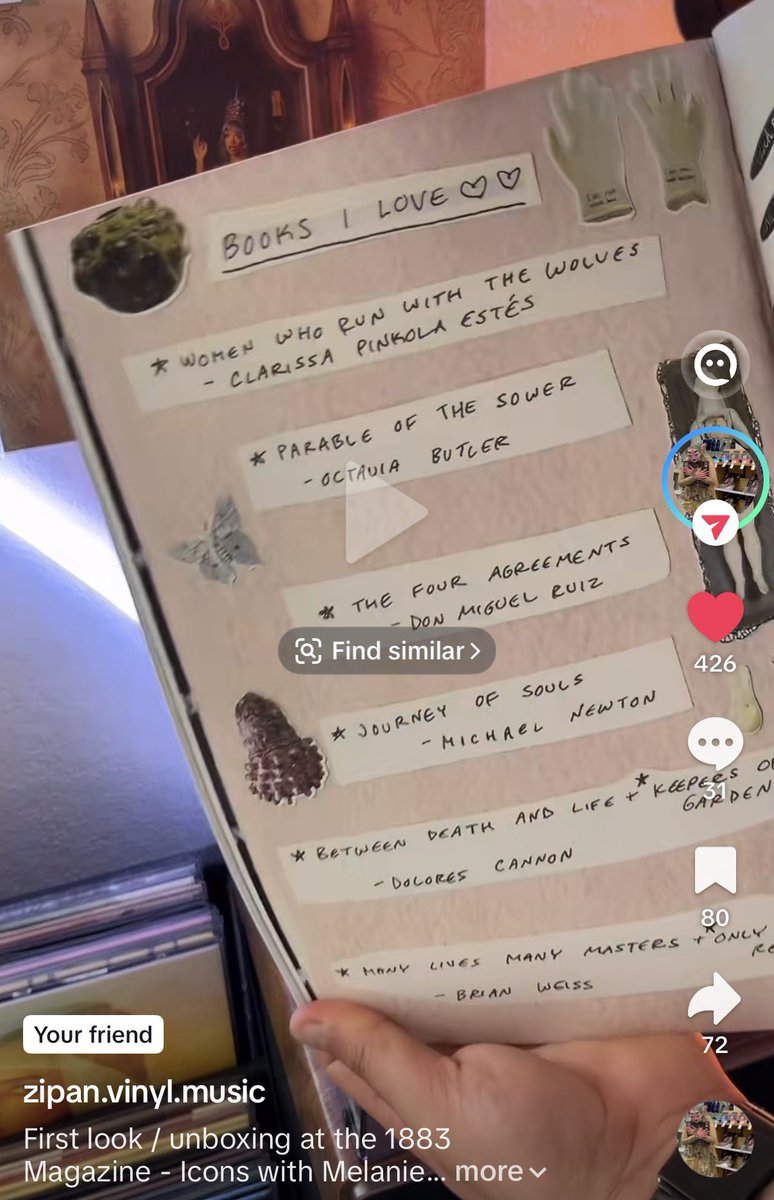 BOOKS I LOVE ♡♡
* WOMEN WHO RUN WITH THE WOLVES
- CLARISSA PINKOLA ESTÉS
* PARABLE OF THE SOWER
- OCTAVIA BUTLER
* THE FOUR AGREEMENTS
- DON MIGUEL RUIZ
Find similar >
* JOURNEY OF SOULS
- MICHAEL NEWTON
* BETWEEN DEATH AND LIFE + * KEEPERS
GARDEN
- DOLORES CANNON
* MANY LIVES MANY MASTERS + * ONLY
- BRIAN WEISS
426
31
80
72
Your friend
zipan.vinyl.music
First look / unboxing at the 1883
Magazine - Icons with Melanie... more